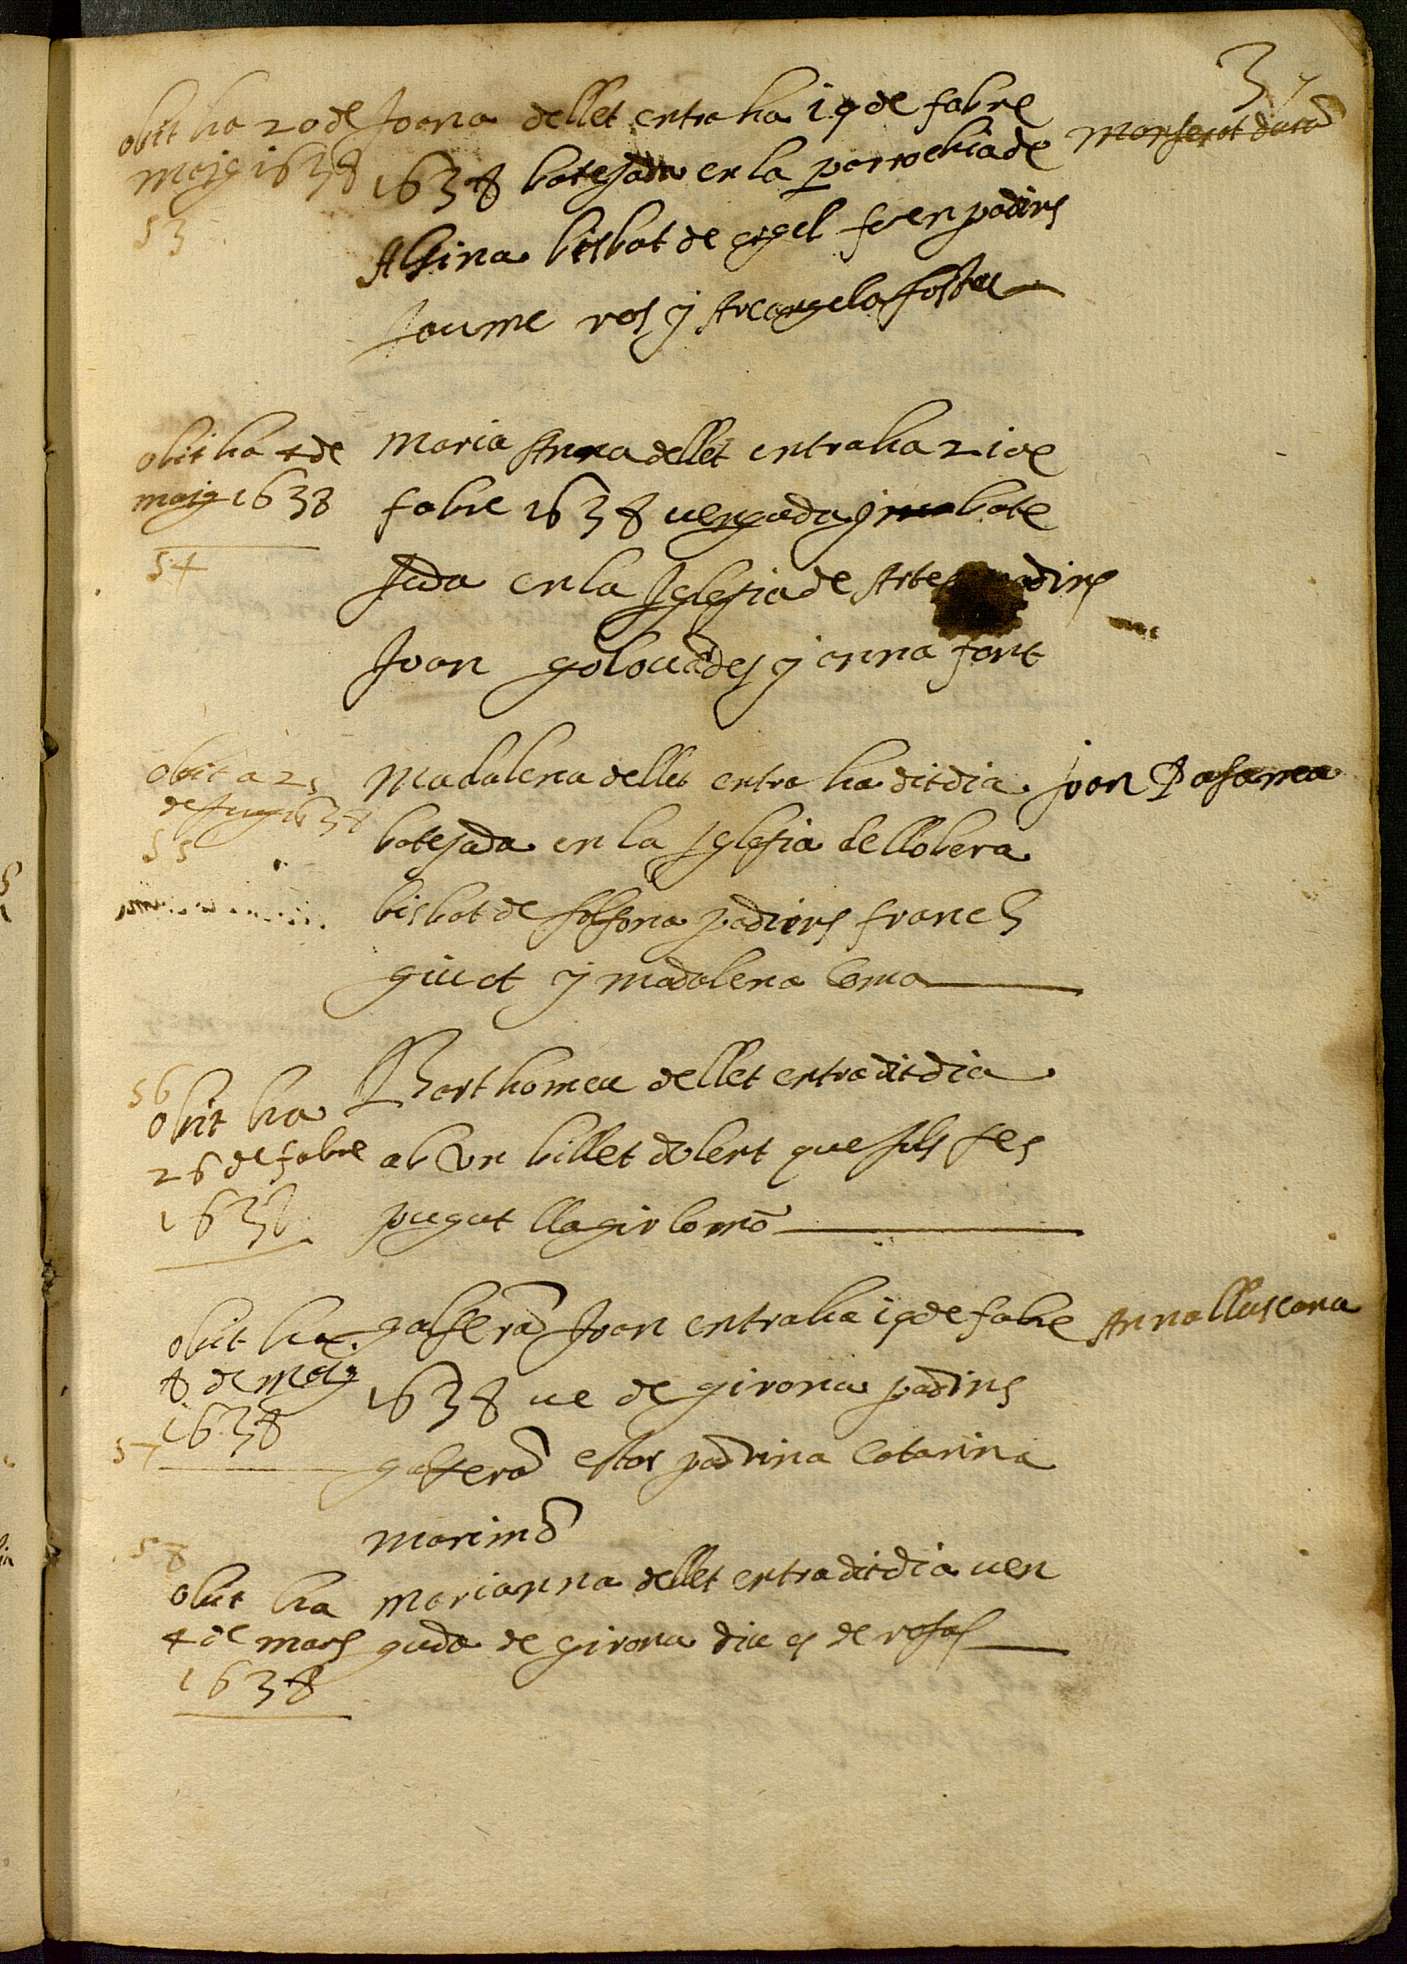 3
obit ha 20 de
maig 1638
53
Joana de llet entra ha 19 de fabre
1638 batejada en la parrochia de
Alsina bisbat de urgel foren padins
Jaume ros y Archangela
Monserrat
obit ha 4 de
maig 1638
54
Maria Anna de llet entra ha 21 de
fabre 1638 uengada y bate
Jada en la Iglesia de
Joan y anna font
obit a 25
de Juny 1638
55
Madalena de llet entra ha dit dia
batejada en la Iglesia de llobera
bisbat de solsona padrins
y madalena Coma
Joan
56
obit ha
26 de fabre
1638
Barthomeu de llet entra dit dia
ab un billet ubert que
pugut llagir lo nō
obit ha
8 de maig
1638
57
galserā Joan entra ha 19 de fabre
1638 ue de girona padins
galserā padrina Catarina
marimō
Anna lluscana
58
obit ha
4 de mars
1638
Marianna de llet entra dit dia uen
guda de girona diu es de rosas